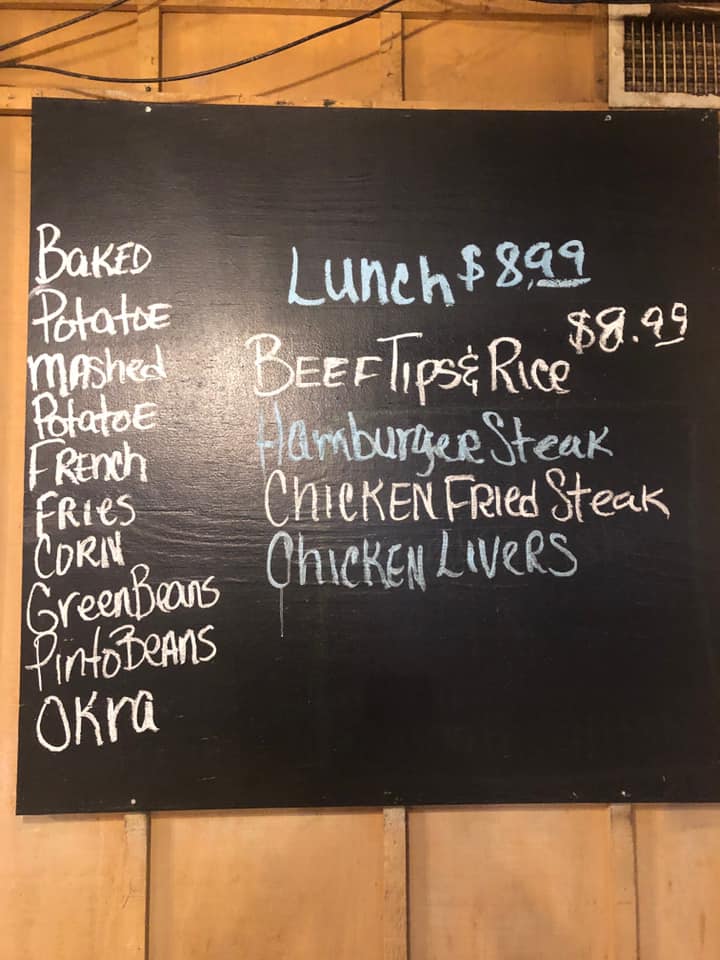 Baked
Potatoe
Mashed
Potatoe
French
Fries
Corn
Green Beans
Pinto Beans
Okra
Lunch $8.99
$8.99
Beef Tips & Rice
Hamburger Steak
Chicken Fried Steak
Chicken Livers